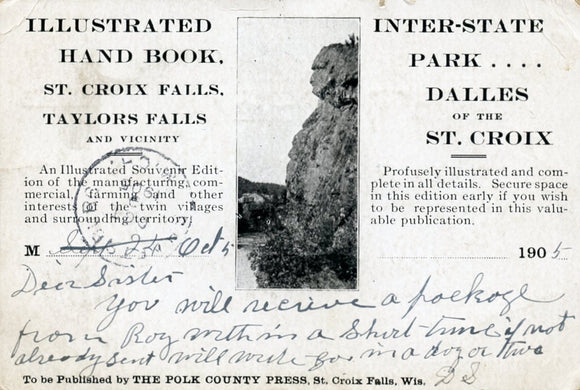 ILLUSTRATED
HAND BOOK,
ST. CROIX FALLS,
TAYLORS FALLS
AND VICINITY
An Illustrated Souvenir Edit-
ion of the manufacturing, com-
mercial, farming and other
interests of the twin villages
and surrounding territory.
INTER-STATE
PARK ....
DALLES
OF THE
ST. CROIX
Profusely illustrated and com-
plete in all details. Secure space
in this edition early if you wish
to be represented in this valu-
able publication.
M Oct 5 1905
Dear Sister
You will recieve a package
from Roy within a Short time if not
already sent will write you in a day or two
To be Published by THE POLK COUNTY PRESS, St. Croix Falls, Wis.